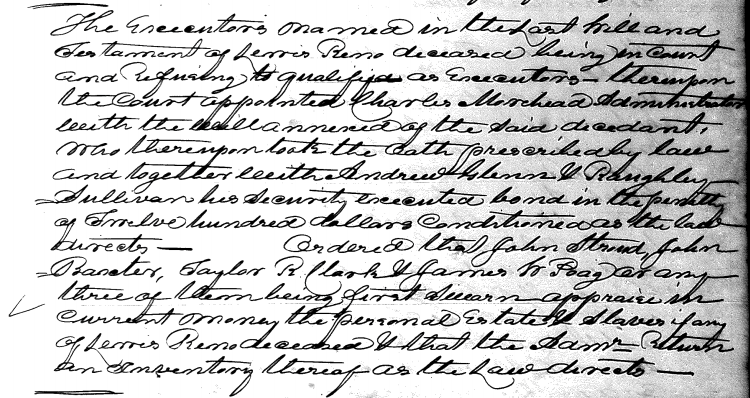 The Executors named in the Last Will and
Testament of Lewis Reno deceased being in Court
and Refusing to qualified as Executors — thereupon
the Court appointed Charles Morehead Administrator
with the Will annexed of the said decedant,
who thereupon took the Oath prescribed by law
and together with Andrew Glenn & Raughley
Sullivan his security executed bond in the penalty
of Twelve hundred dollars Conditioned as the law
directs — Ordered that John Stroud, John
Baxter, Taylor R. Clark & James W Poag or any
three of them being first Sworn appraise in
Current money the personal Estate & Slaves if any
of Lewis Reno deceased & that the Admr Return
an Inventory thereof as the Law directs —